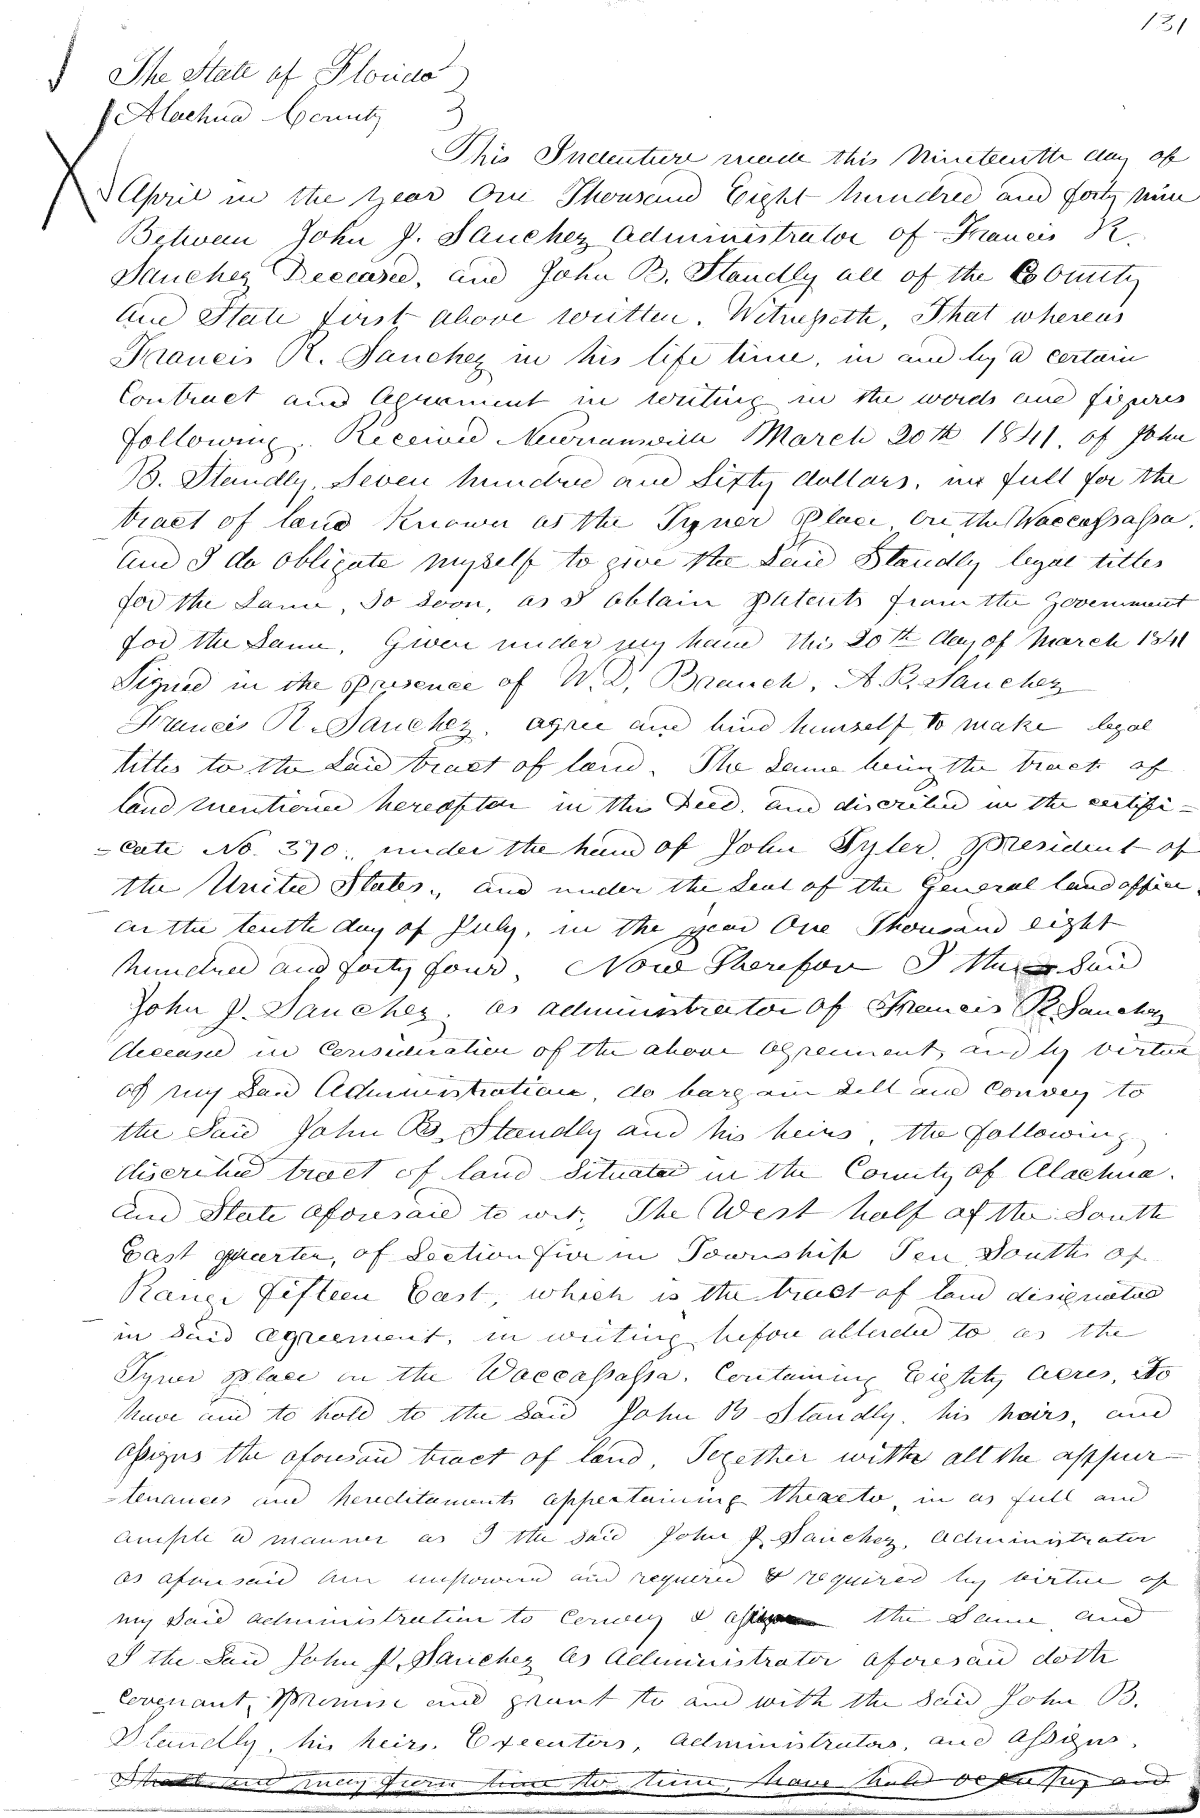 131
The State of Florida
Alachua County
This Indenture made this Nineteenth day of
April in the year One Thousand Eight hundred and forty nine
Between John J. Sanchez Administrator of Francis R.
Sanchez Deceased, and John B. Standly all of the County
and State first above written. Witnesseth, That whereas
Francis R. Sanchez in his life time, in and by a certain
Contract and Agreement in writing in the words and figures
following. Received Newnansville March 20th 1841, of John
B. Standly, Seven hundred and Sixty dollars, in full for the
tract of land Known as the Tyner place, on the Waccassassa,
and I do obligate myself to give the Said Standly legal titles
for the Same, So Soon, as I obtain patents from the government
for the Same, Given under my hand this 20th day of March 1841
Signed in the presence of W. D. Branch, A. R. Sanchez
Francis R. Sanchez, agree and bind himself to make legal
titles to the Said tract of land. The Same being the tract of
land mentioned hereafter in this Deed, and discribed in the certifi-
-cate No. 390, under the hand of John Tyler, president of
the United States, and under the Seal of the General land office,
on the tenth day of July, in the year One Thousand eight
hundred and forty four, Now Therefore I the Said
John J. Sanchez, as administrator of Francis R. Sanchez
deceased in Consideration of the above agreement, and by virtue
of my Said Administration, do bargain Sell and Convey to
the Said John B. Standly and his heirs, the following
discribed tract of land Situated in the County of Alachua.
and State aforesaid to wit; The West half of the South
East quarter, of Section five in Township Ten South of
Range fifteen East, which is the tract of land designated
in Said agreement, in writing before alluded to as the
Tyner place on the Waccassassa. Containing Eighty acres, To
have and to hold to the Said John B Standly, his heirs, and
assigns the aforesaid tract of land, Together with all the appur-
-tenances and hereditaments appertaining thereto, in as full and
ample a manner as I the said John J. Sanchez, Administrator
as aforesaid am empowered and required & required by virtue of
my Said administration to Convey & assign the Same, and
I the Said John J. Sanchez as Administrator aforesaid doth
Covenant, Promise and grant to and with the Said John B.
Standly, his heirs, Executors, Administrators, and assigns,
Shall and may from time to time, have hold occupy and